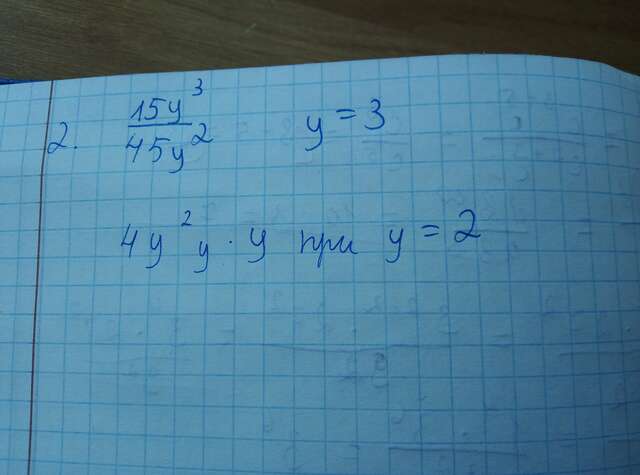 2. 15y³/45y² y = 3
4y²y · y при y = 2